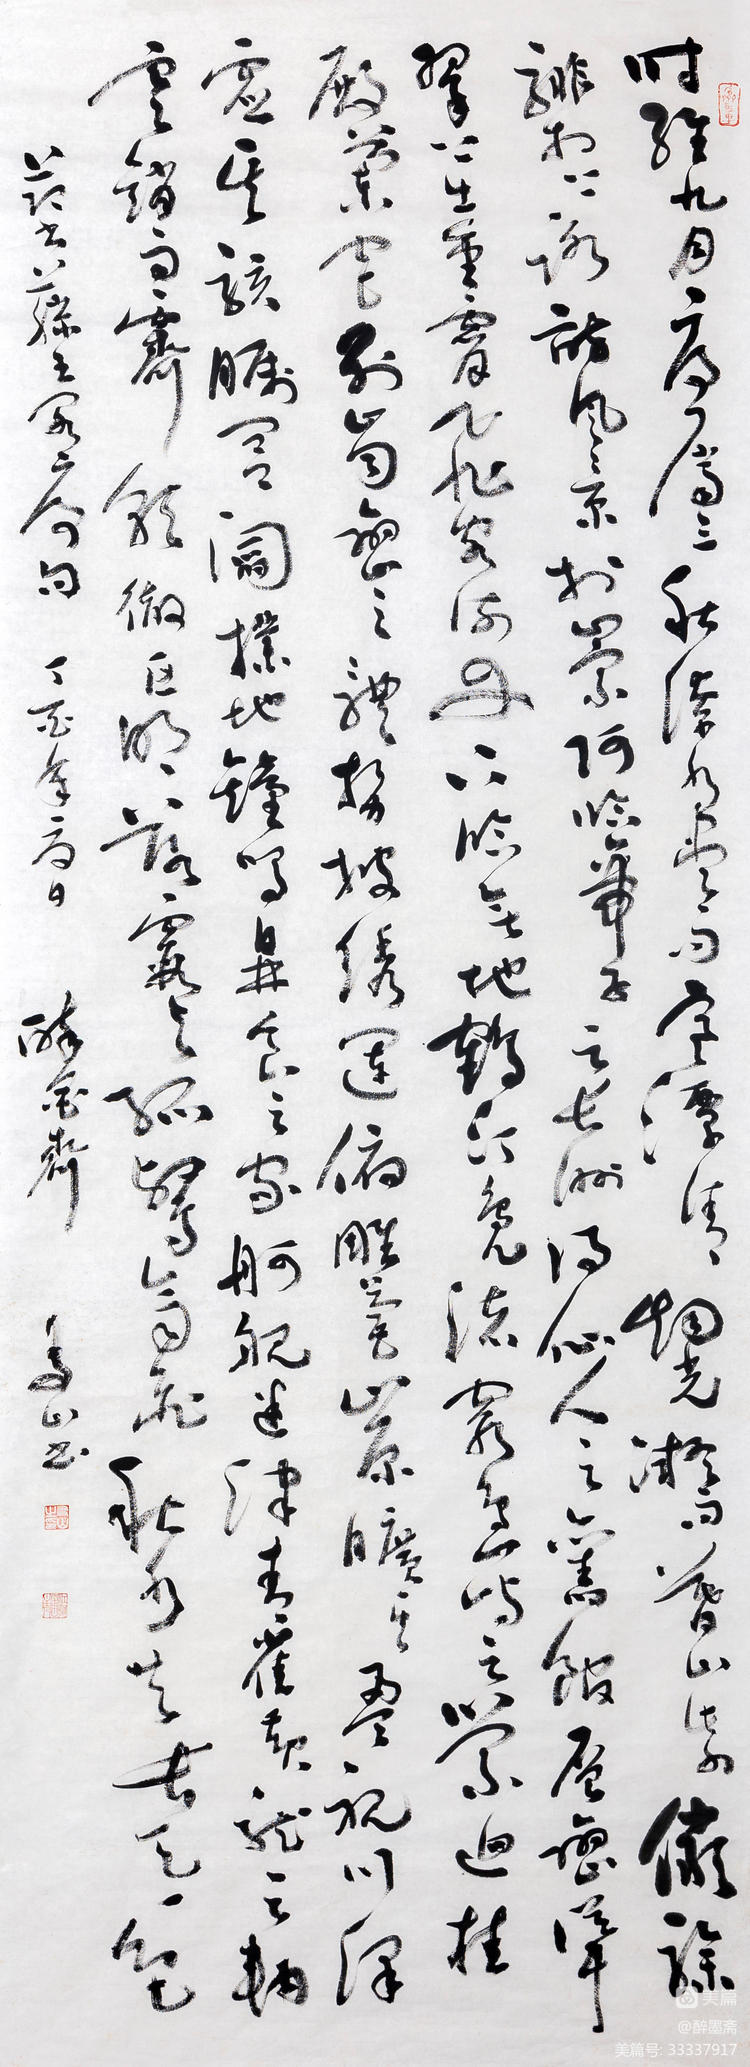 時維九月序屬三秋潦水盡而寒潭清烟光凝而暮山紫儼驂
騑於上路訪風景於崇阿臨帝子之長洲得仙人之舊館層巒聳
翠上出重霄飛閣流丹下臨無地鶴汀鳧渚窮島嶼之縈迴桂
殿蘭宮列崗巒之體勢披繡闥俯雕甍山原曠其盈視川澤
虛其駭矚閭閻撲地鐘鳴鼎食之家舸艦迷津青雀黃龍之軸
雲銷雨霽彩徹區明落霞與孤鶩齊飛秋水共長天一色
節書滕王閣序句 丁酉年夏日 醉墨齋 山書
美篇
@醉墨斋
美篇号: 33337917